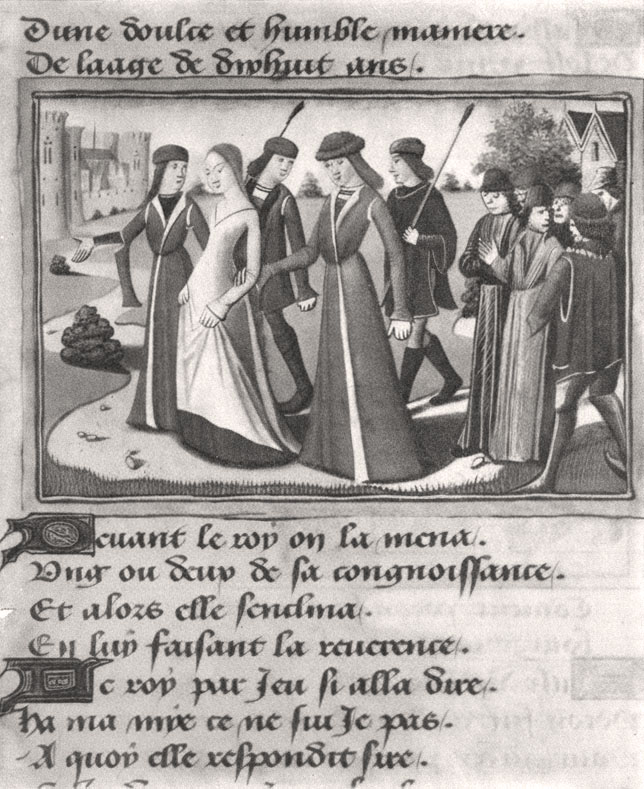 Dune doulce et humble maniere.
De laage de dixhuit ans.
Deuant le roy on la mena.
Ung ou deux de sa congnoissance.
Et alors elle senclina.
En luy faisant la reuerence.
Le roy par Jeu si alla dire.
Ha ma mye ce ne suy Je pas.
A quoy elle respondit sire.